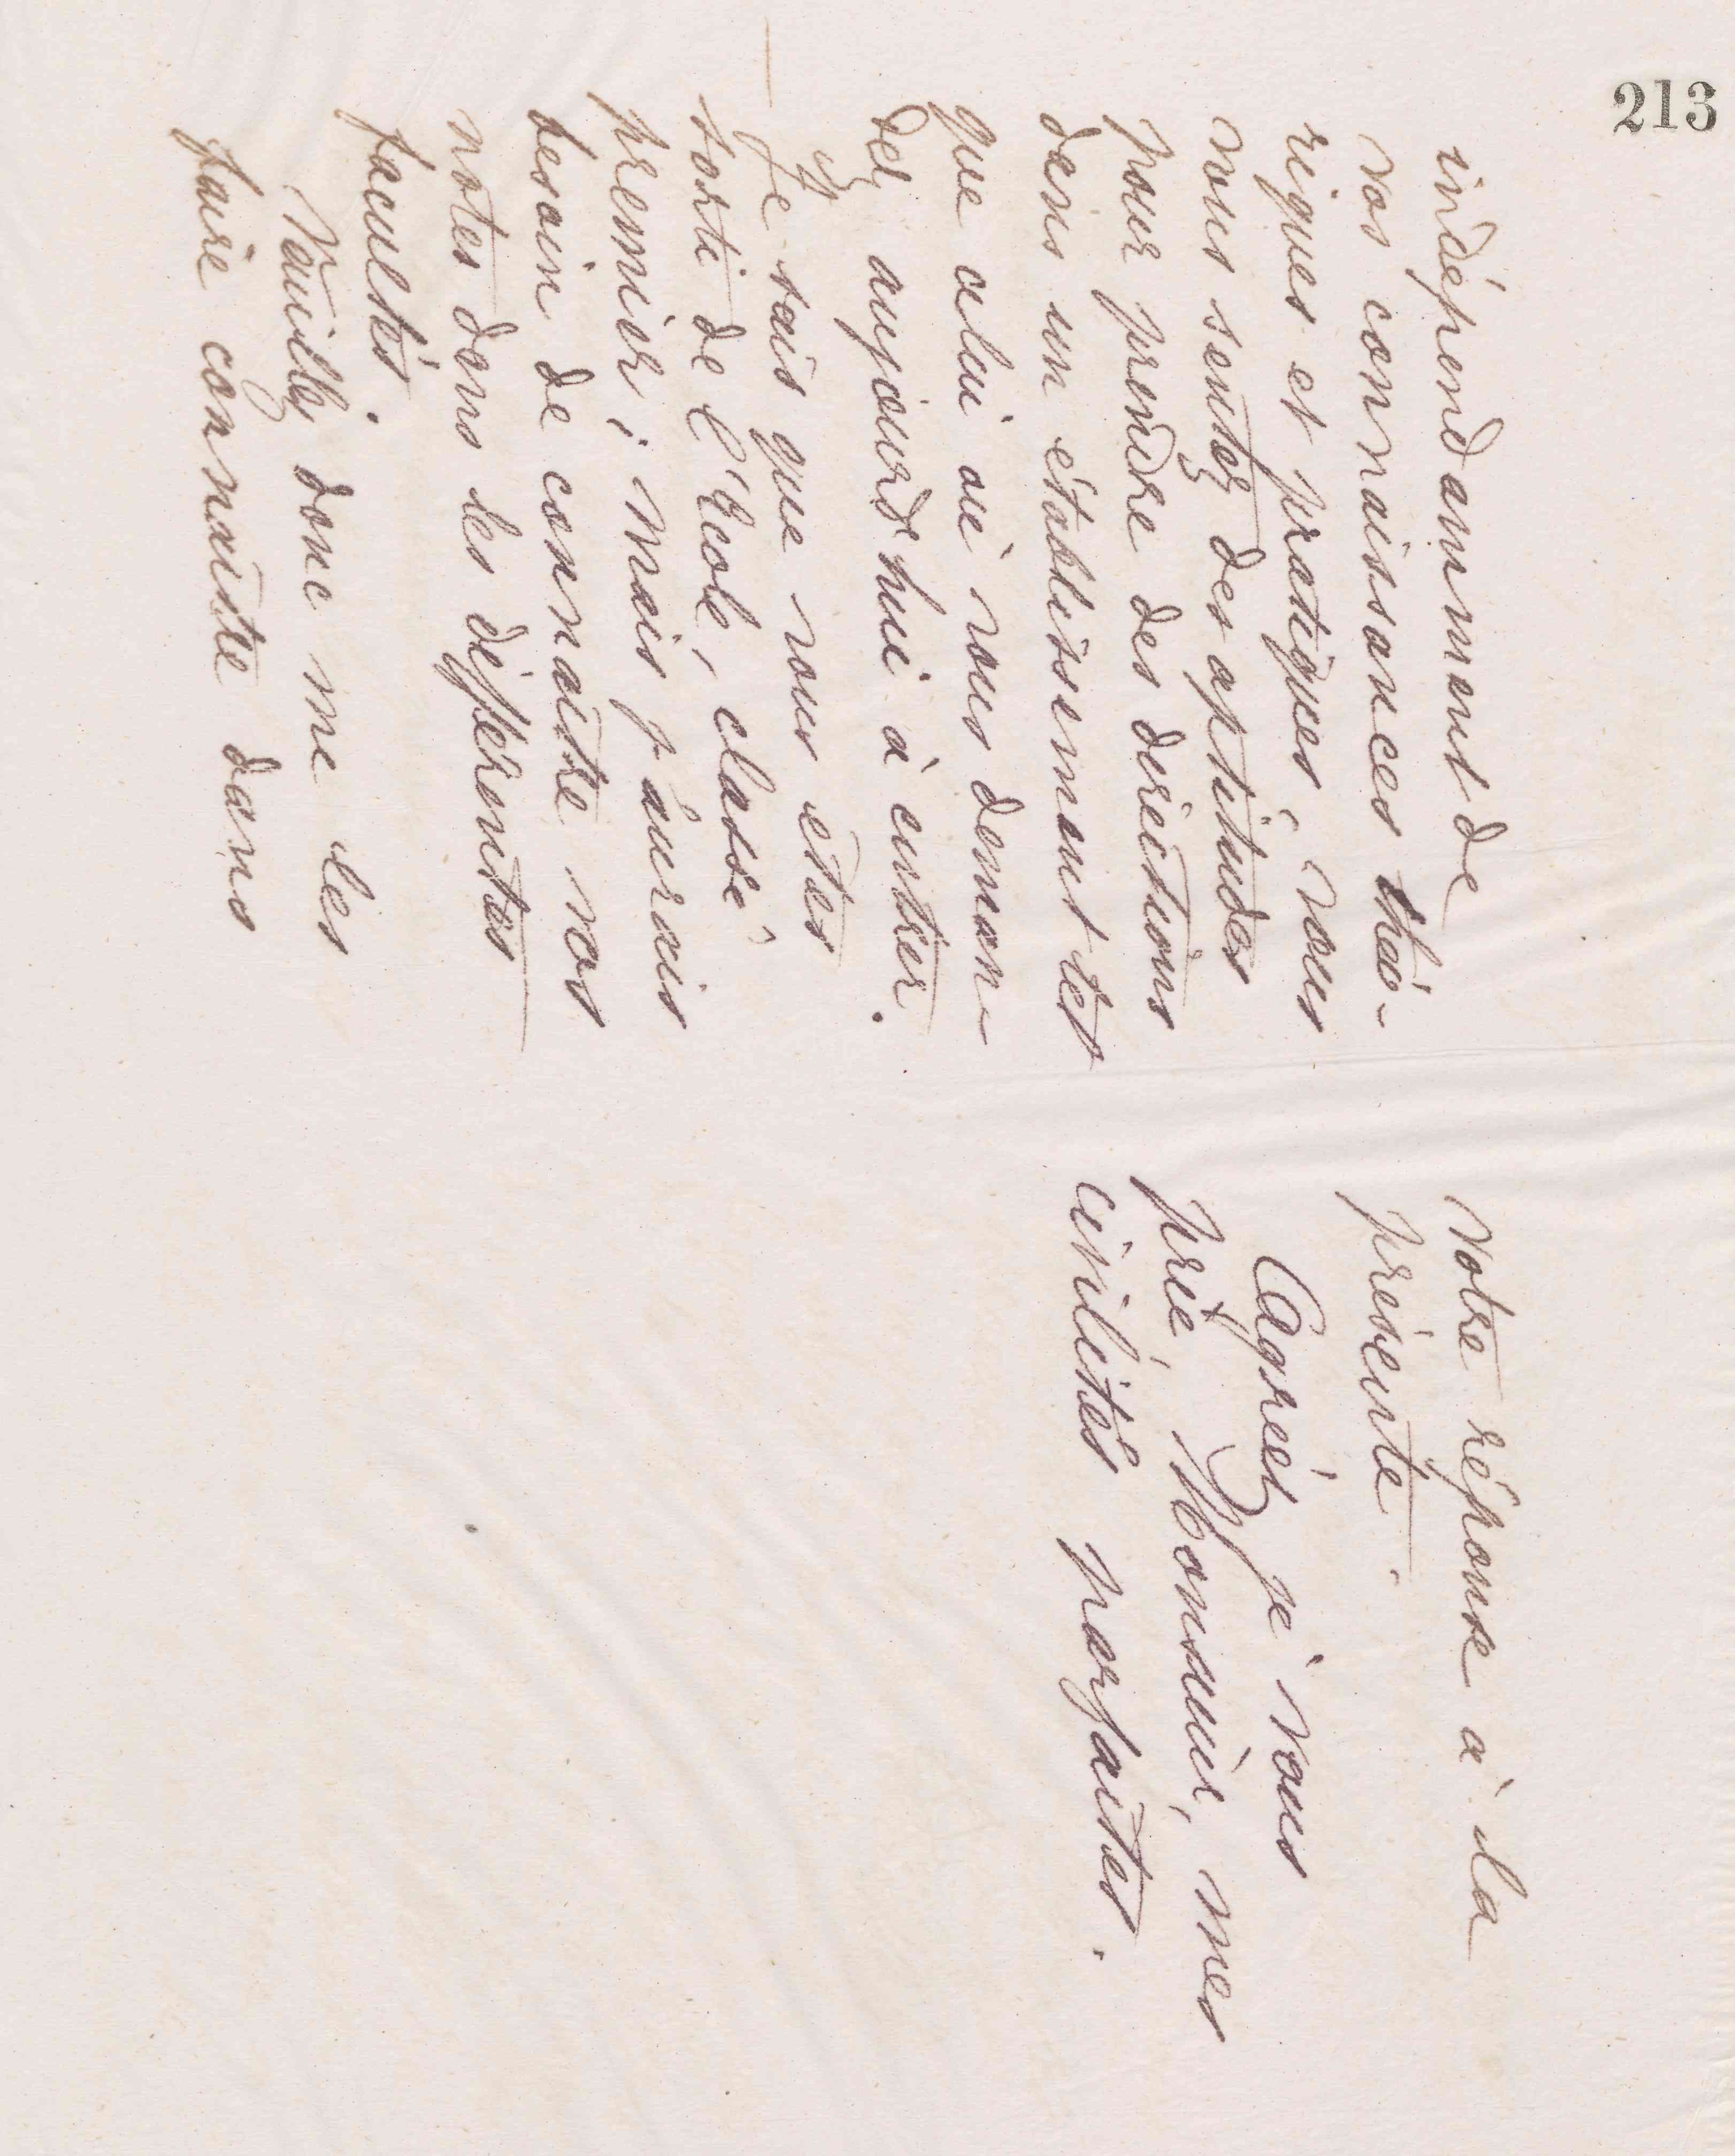 213
indépendamment de
vos connaissances théo-
riques et pratiques, vous
vous sentez des aptitudes
pour prendre des directions
dans un établissement tel
que celui où vous deman-
dez aujourd'hui à entrer.
Je sais que vous êtes
sorti de l'École, classé
premier; mais j'aurais
besoin de connaitre vos
notes dans les différentes
facultés.
Veuillez donc me les
faire connaitre dans
votre réponse à la
présente.
Agréez je vous
prie, Monsieur, mes
civilités parfaites.